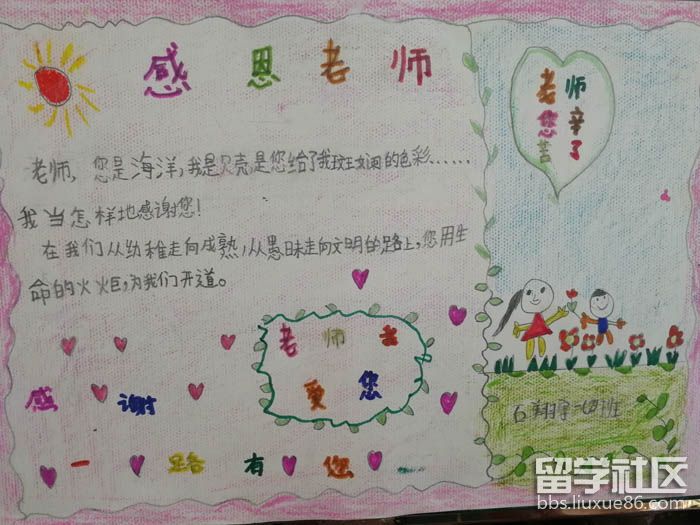 感恩老师
老师
您辛
苦了
老师，您是海洋，我是贝壳，是您给了我斑斓的色彩……
我当怎样地感谢您！
在我们从幼稚走向成熟，从愚昧走向文明的路上，您用生
命的火炬，为我们开道。
老师
爱您
感谢
一路有您
石翔宇一四班
留学社区
bbs.liuxue86.com